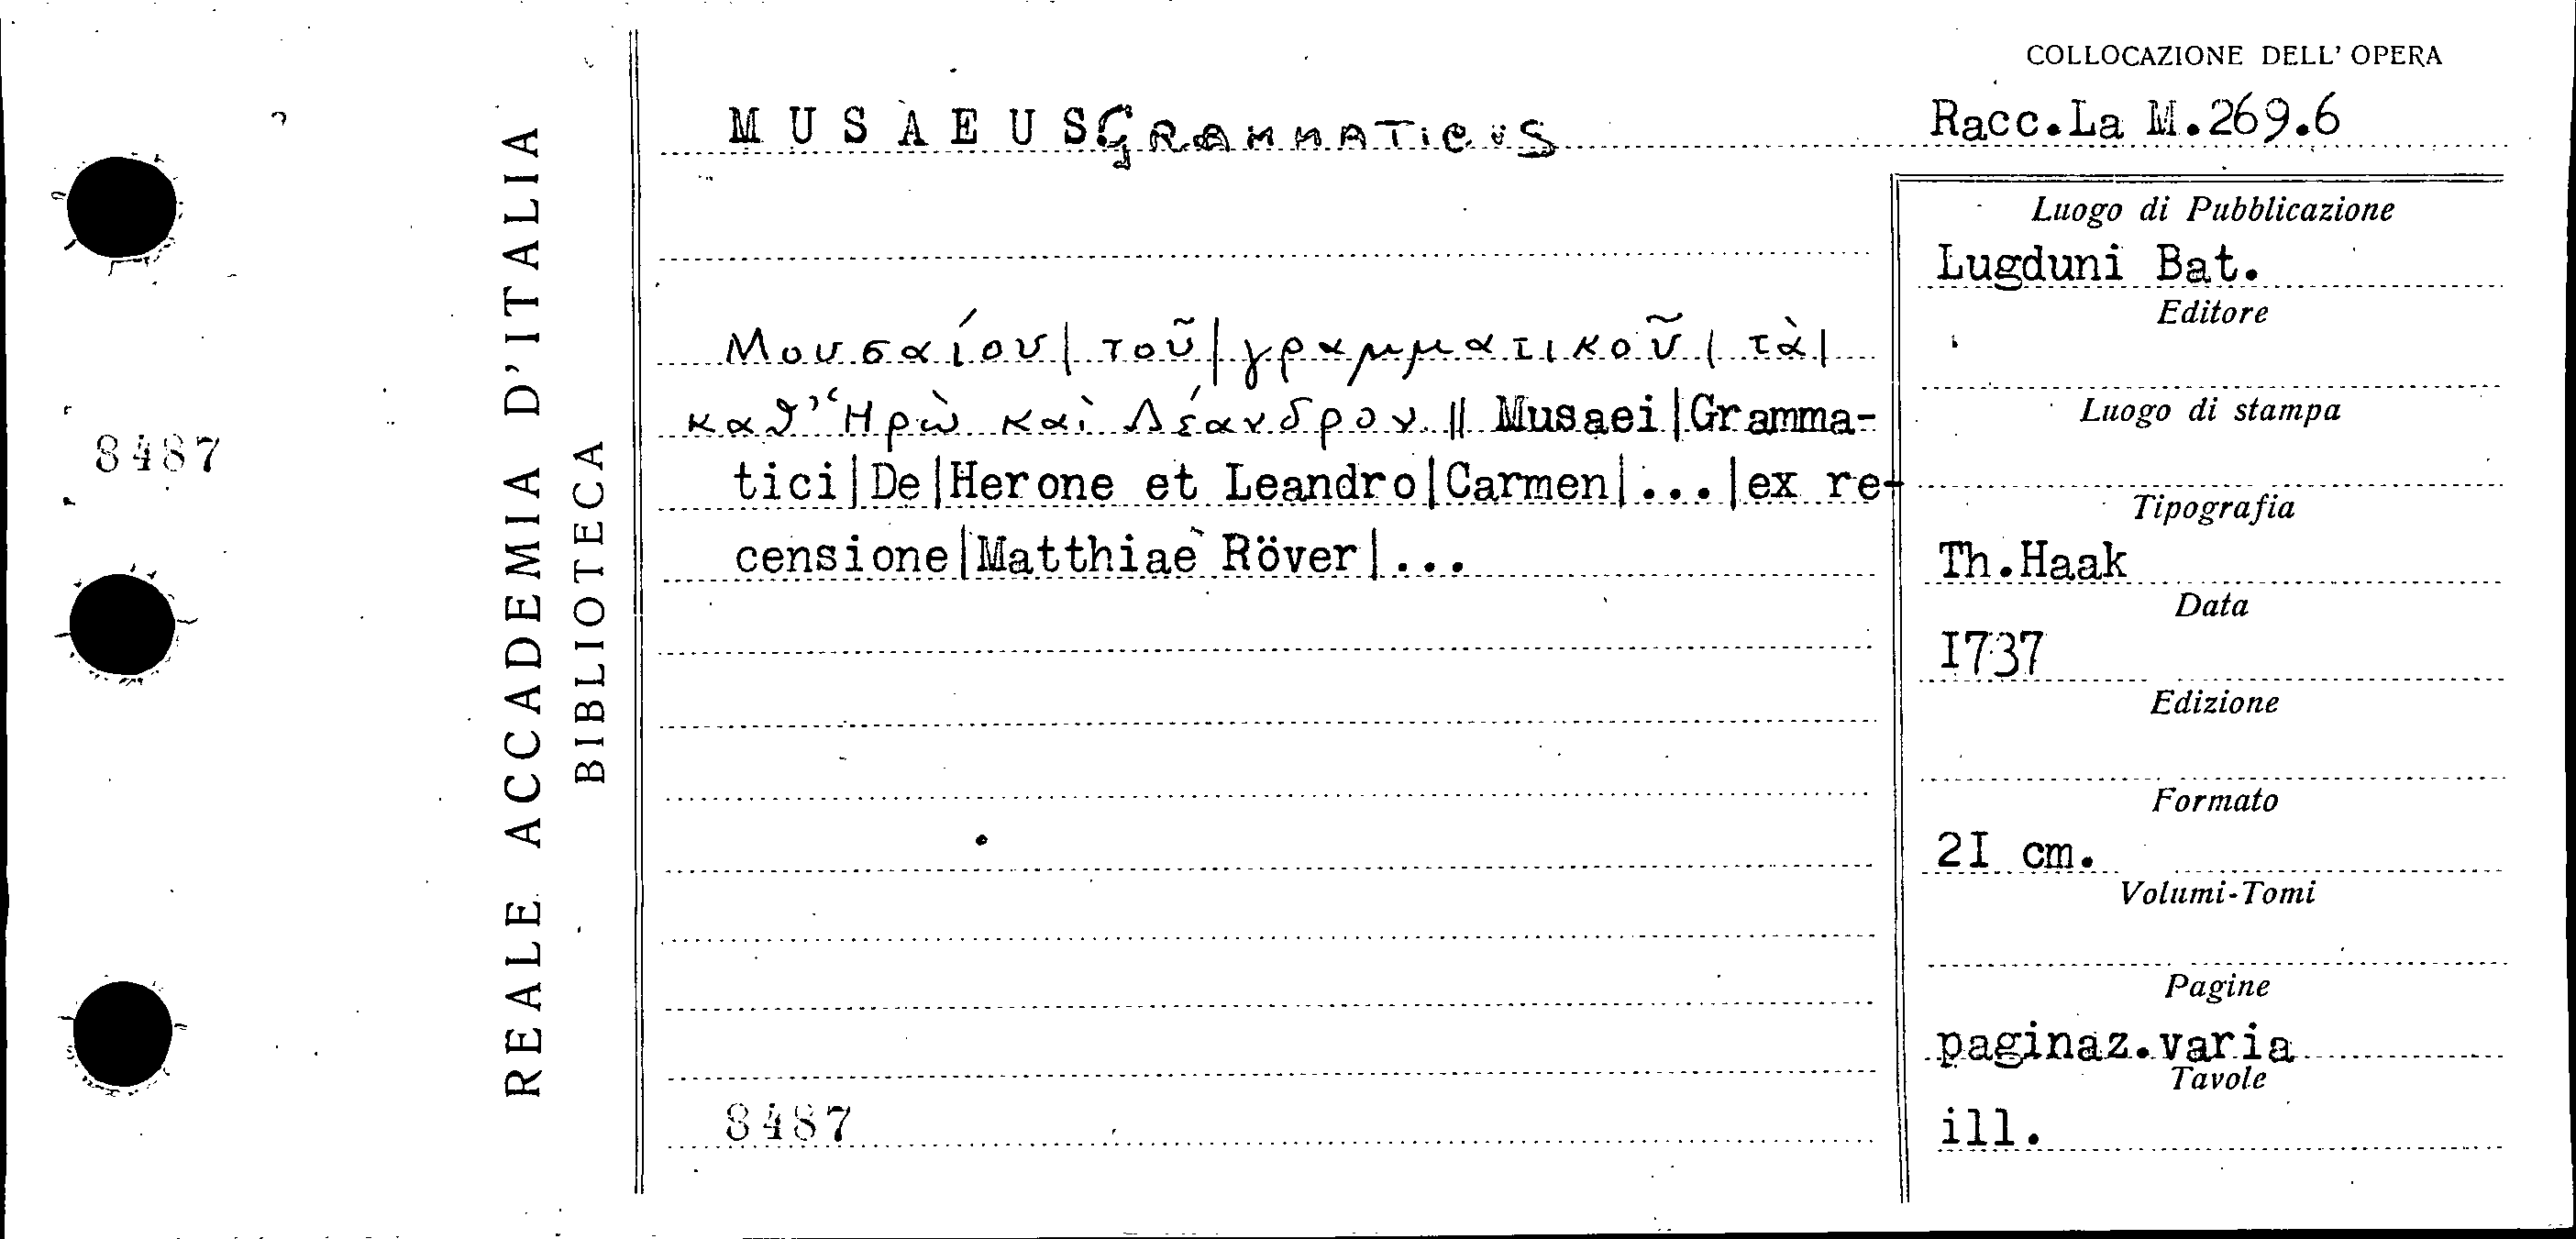 COLLOCAZIONE DELL' OPERA
MUSAEUS GRAMMATICUS
Racc.La M.269.6
Μουσαίου|τοῦ|γραμματικοῦ|τὰ|
καθ' Ἡρὼ καὶ Λέανδρον || Musaei|Gramma-
tici|De|Herone et Leandro|Carmen|...|ex re-
censione|Matthiae Röver|...
8487
8487
REALE ACCADEMIA D'ITALIA
BIBLIOTECA
Luogo di Pubblicazione
Lugduni Bat.
Editore
Luogo di stampa
Tipografia
Th.Haak
Data
I737
Edizione
Formato
2I cm.
Volumi-Tomi
Pagine
paginaz.varia
Tavole
ill.